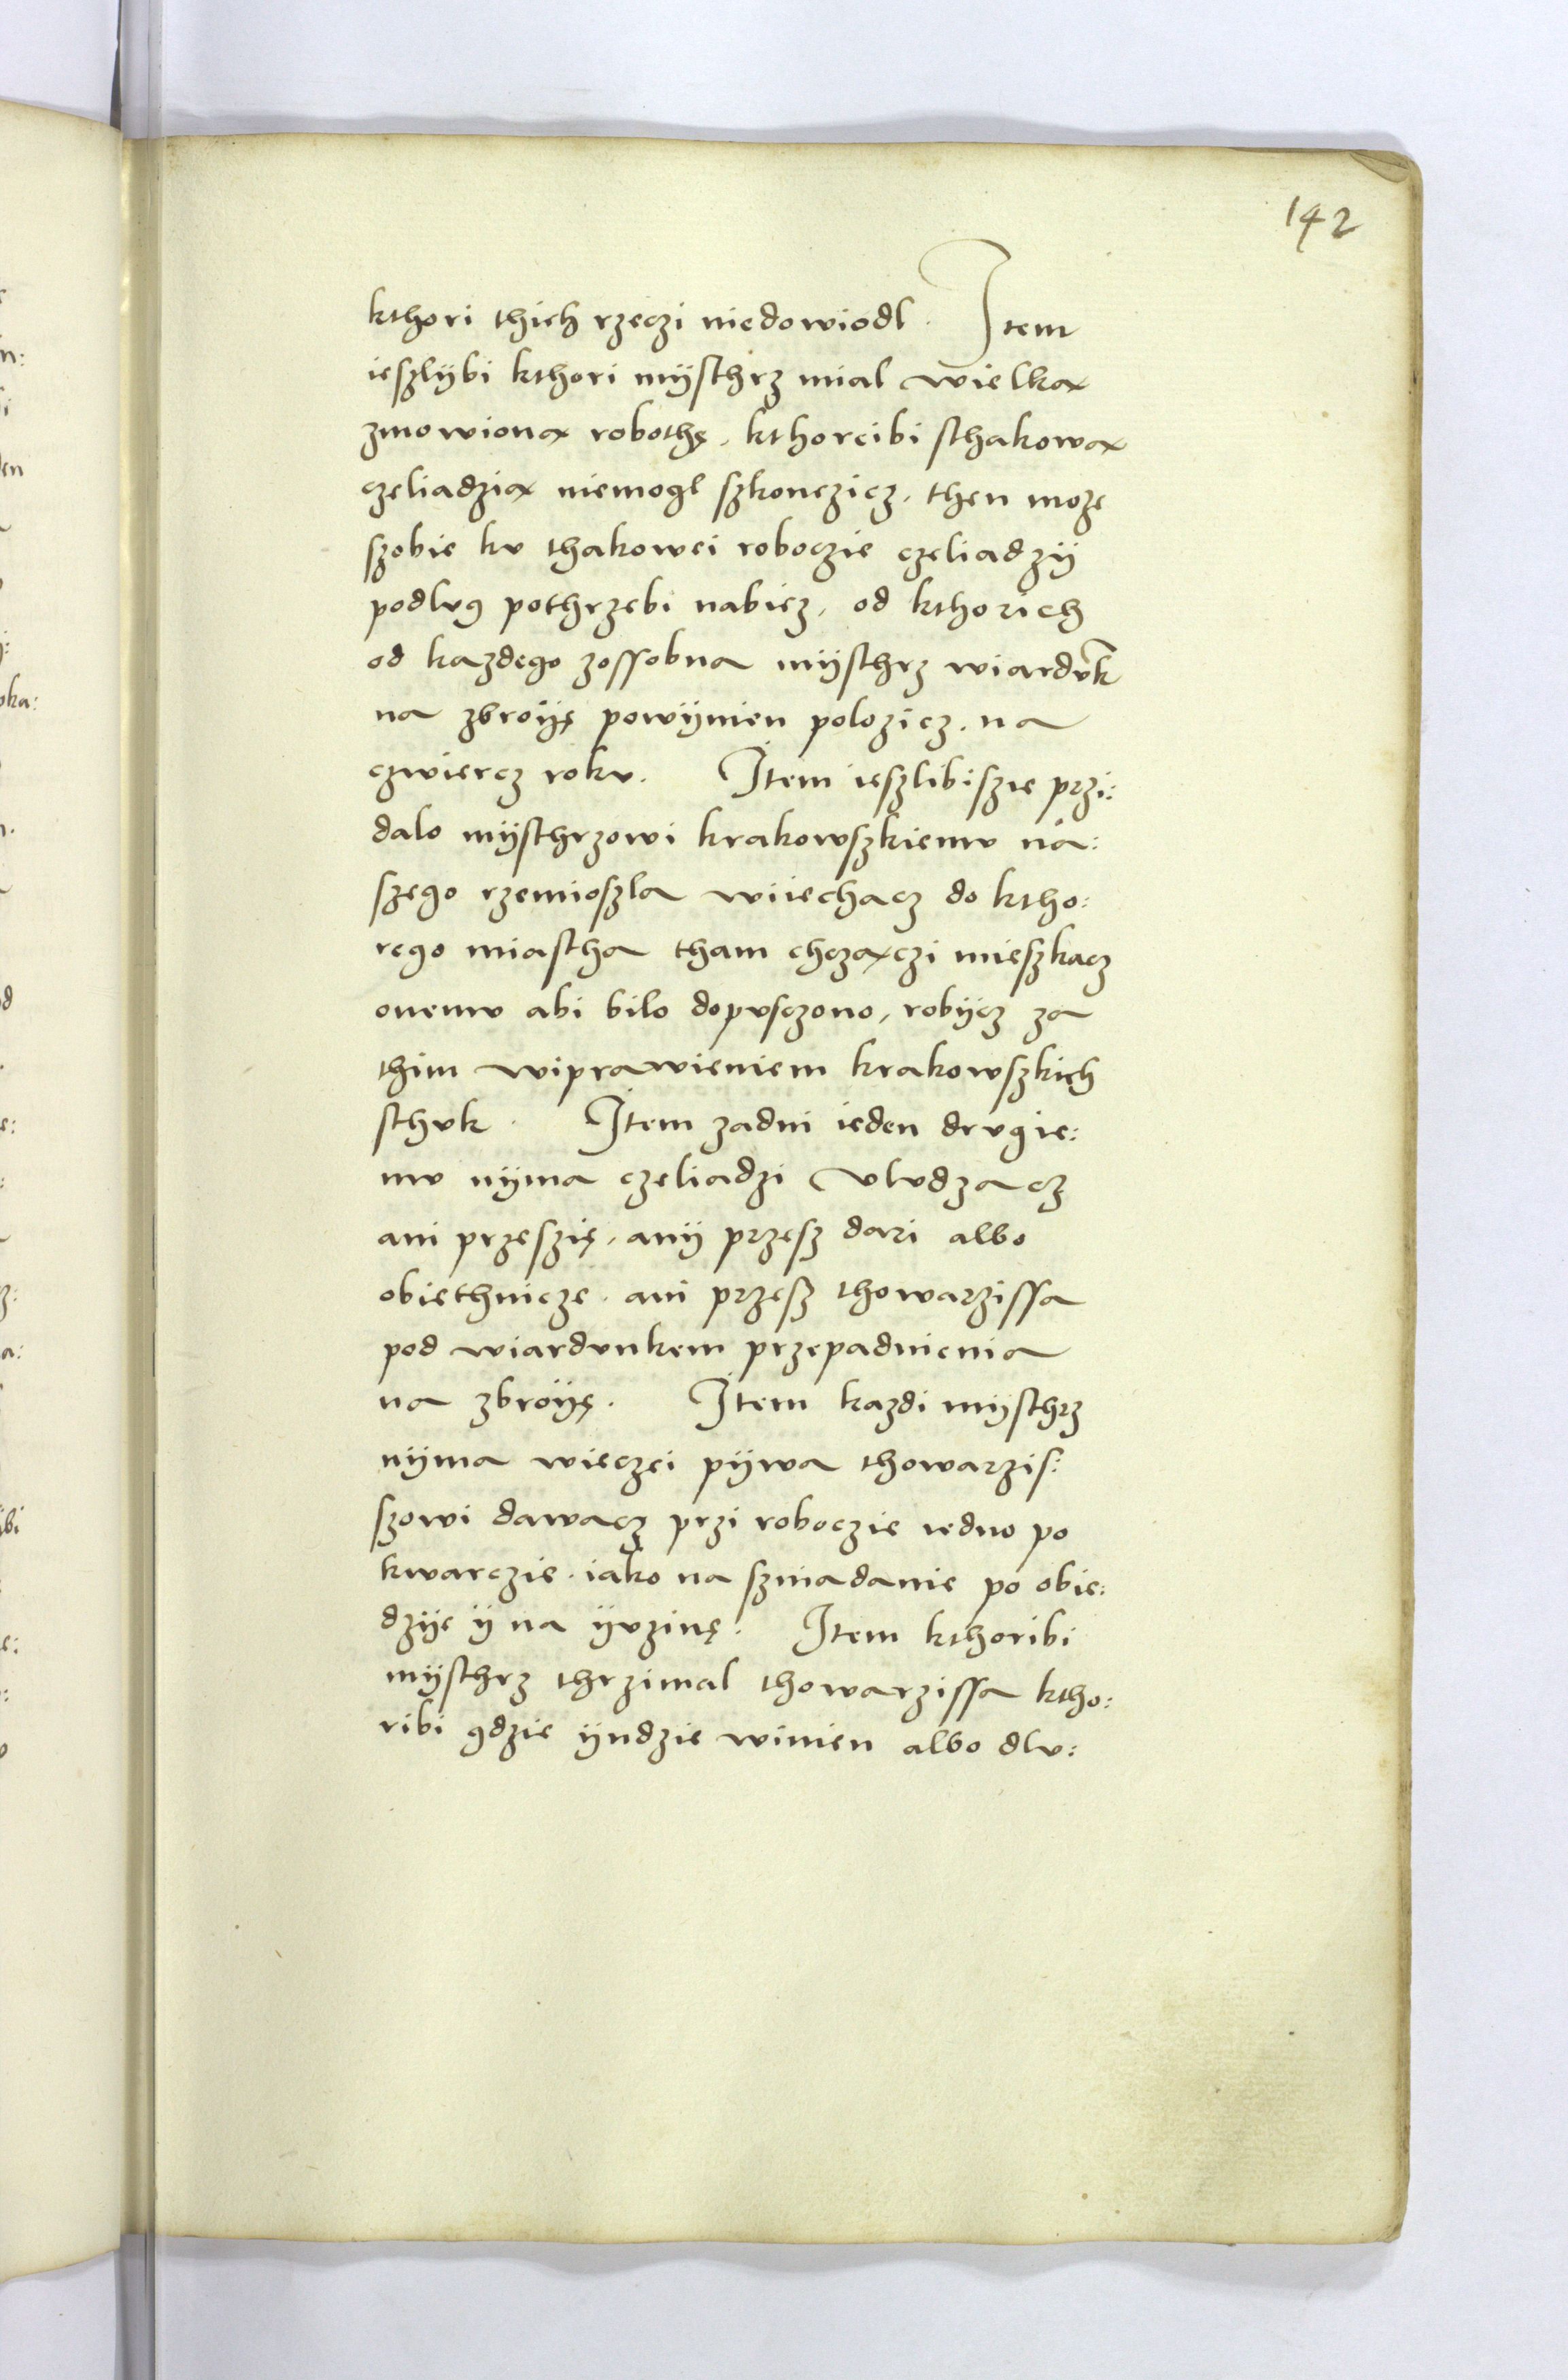 142
kthori thich rzeczi niedowiodl. Item
ieszlÿbi kthori mÿsthrz mial wielkax
zmowionax robothę, kthoreibi sthakowax
czeliadziax niemogl szkonczicz, then moze
szobie kv thakowei roboczie czeliadzÿ
podlvg pothrzebi nabicz, od kthorich
od kazdego zossobna mÿsthrz wiardvk
na zbroÿę powÿnien polozicz, na
czwiercz rokv. Item ieszlibiszie przi:
dalo mÿsthrzowi krakowszkiemv na:
szego rzemioszla wiiechacz do ktho:
rego miastha tham chczaxczi mieszkacz
onemv abi bilo dopvsczono, robÿcz za
thim wiprawieniem krakowszkich
sthvk. Item zadni ieden drvgie:
mv nÿma czeliadzi vlvdzacz
ani przeszię, anÿ przesz dari albo
obiethnicze, ani przesz thowarzissa
pod wiardvnkem przepadnienia
na zbroÿę. Item kazdi mÿsthrz
nÿma wieczei pÿwa thowarzis:
szowi dawacz przi roboczie iedno po
kwarczie, iako na szniadanie po obie:
dzÿe ÿ na ÿvzinę. Item kthoribi
mÿsthrz thrzimal thowarzissa ktho:
ribi gdzie ÿndzie winien albo dlv: